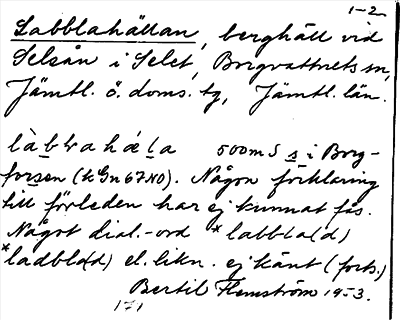 1-2
Labblahällan, berghäll vid
Selsån i Selet, Borgvattnets sn,
Jämtl. ö. doms. tg, Jämtl. län.
500 m S s i Borg-
forsen (kGn67NO). Någon förklaring
till förleden har ej kunnat fås.
Något dial.-ord *labbla(d)
*ladbla(d) el. likn. ej känt (forts.)
Bertil Flemström 1953.